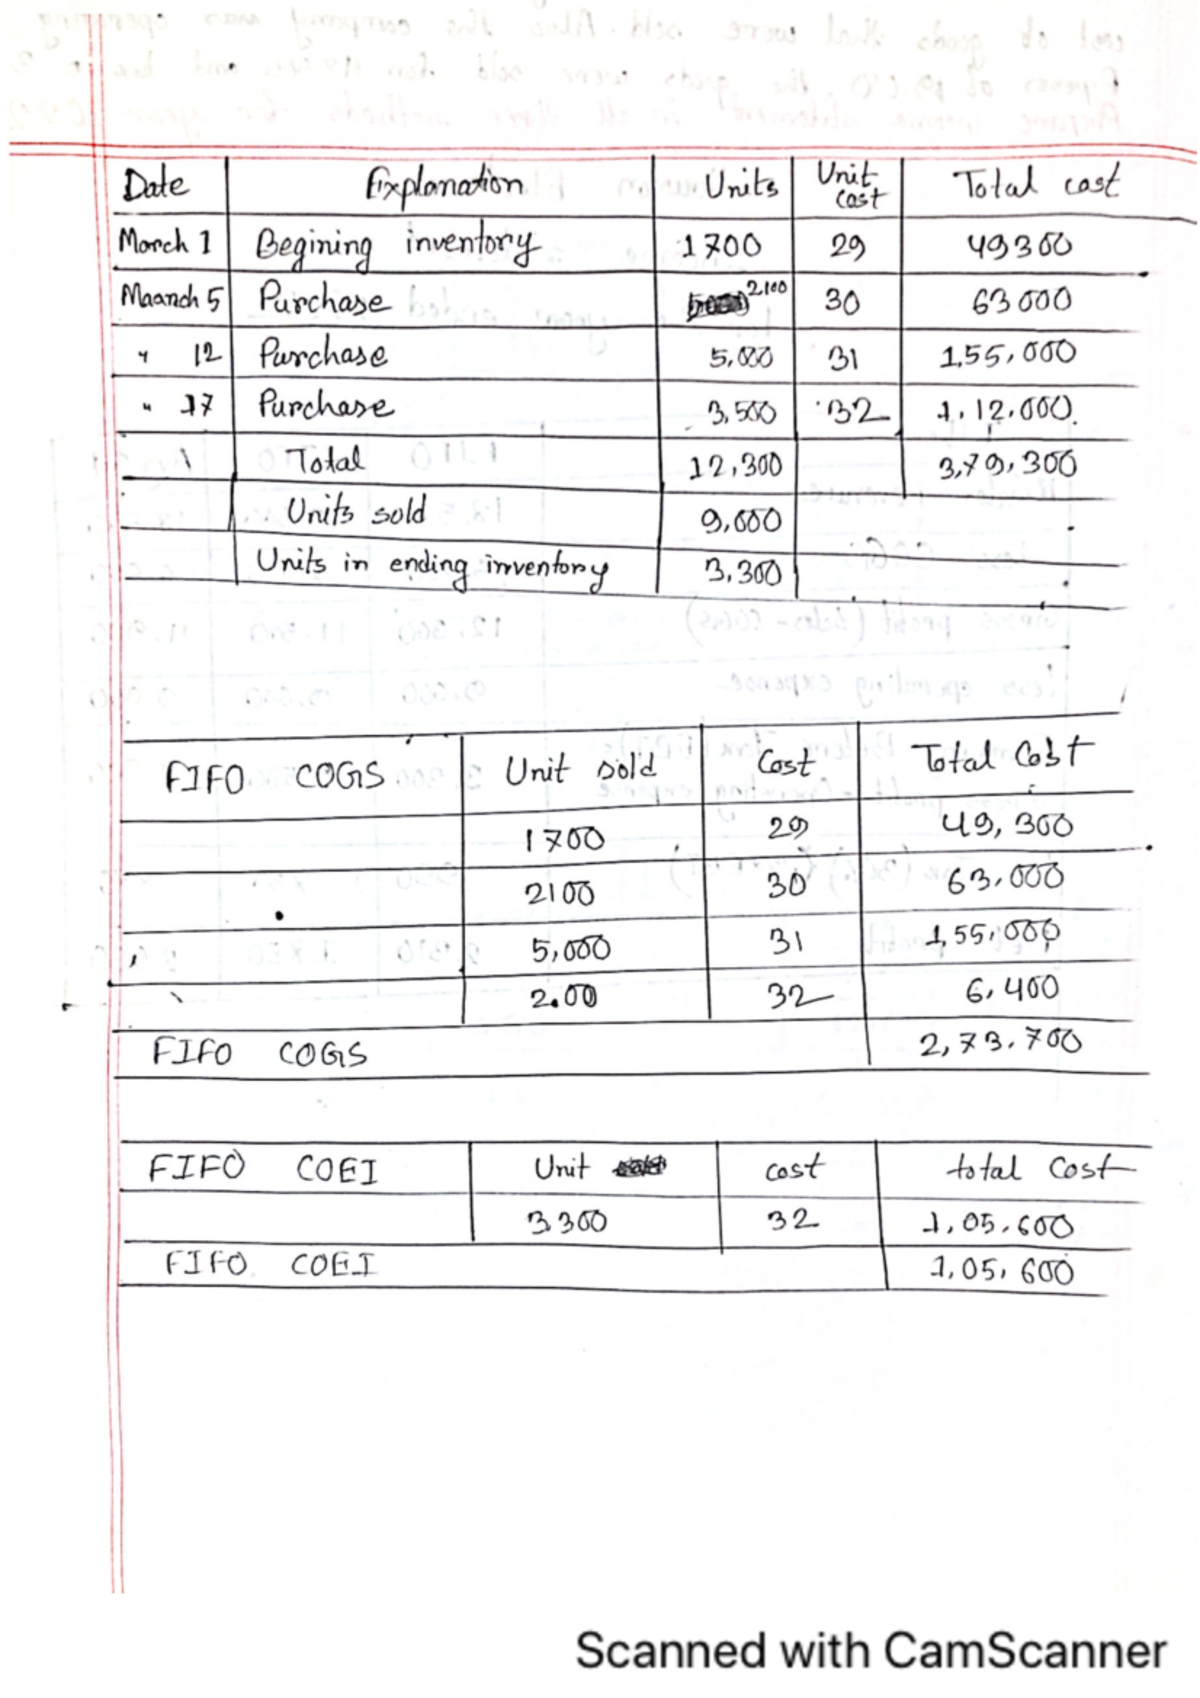 Date Explanation Units Unit cost Total cost
March 1 Begining inventory 1700 29 49300
Maanch 5 Purchase 2100 30 63000
" 12 Purchase 5,000 31 1,55,000
" 17 Purchase 3,500 32 1,12,000.
Total 12,300 3,79,300
Units sold 9,000
Units in ending inventory 3,300
FIFO COGS Unit sold Cost Total Cost
1700 29 49,300
2100 30 63,000
5,000 31 1,55,000
2.00 32 6,400
FIFO COGS 2,73,700
FIFO COEI Unit cost total Cost
3300 32 1,05,600
FIFO COEI 1,05,600
Scanned with CamScanner